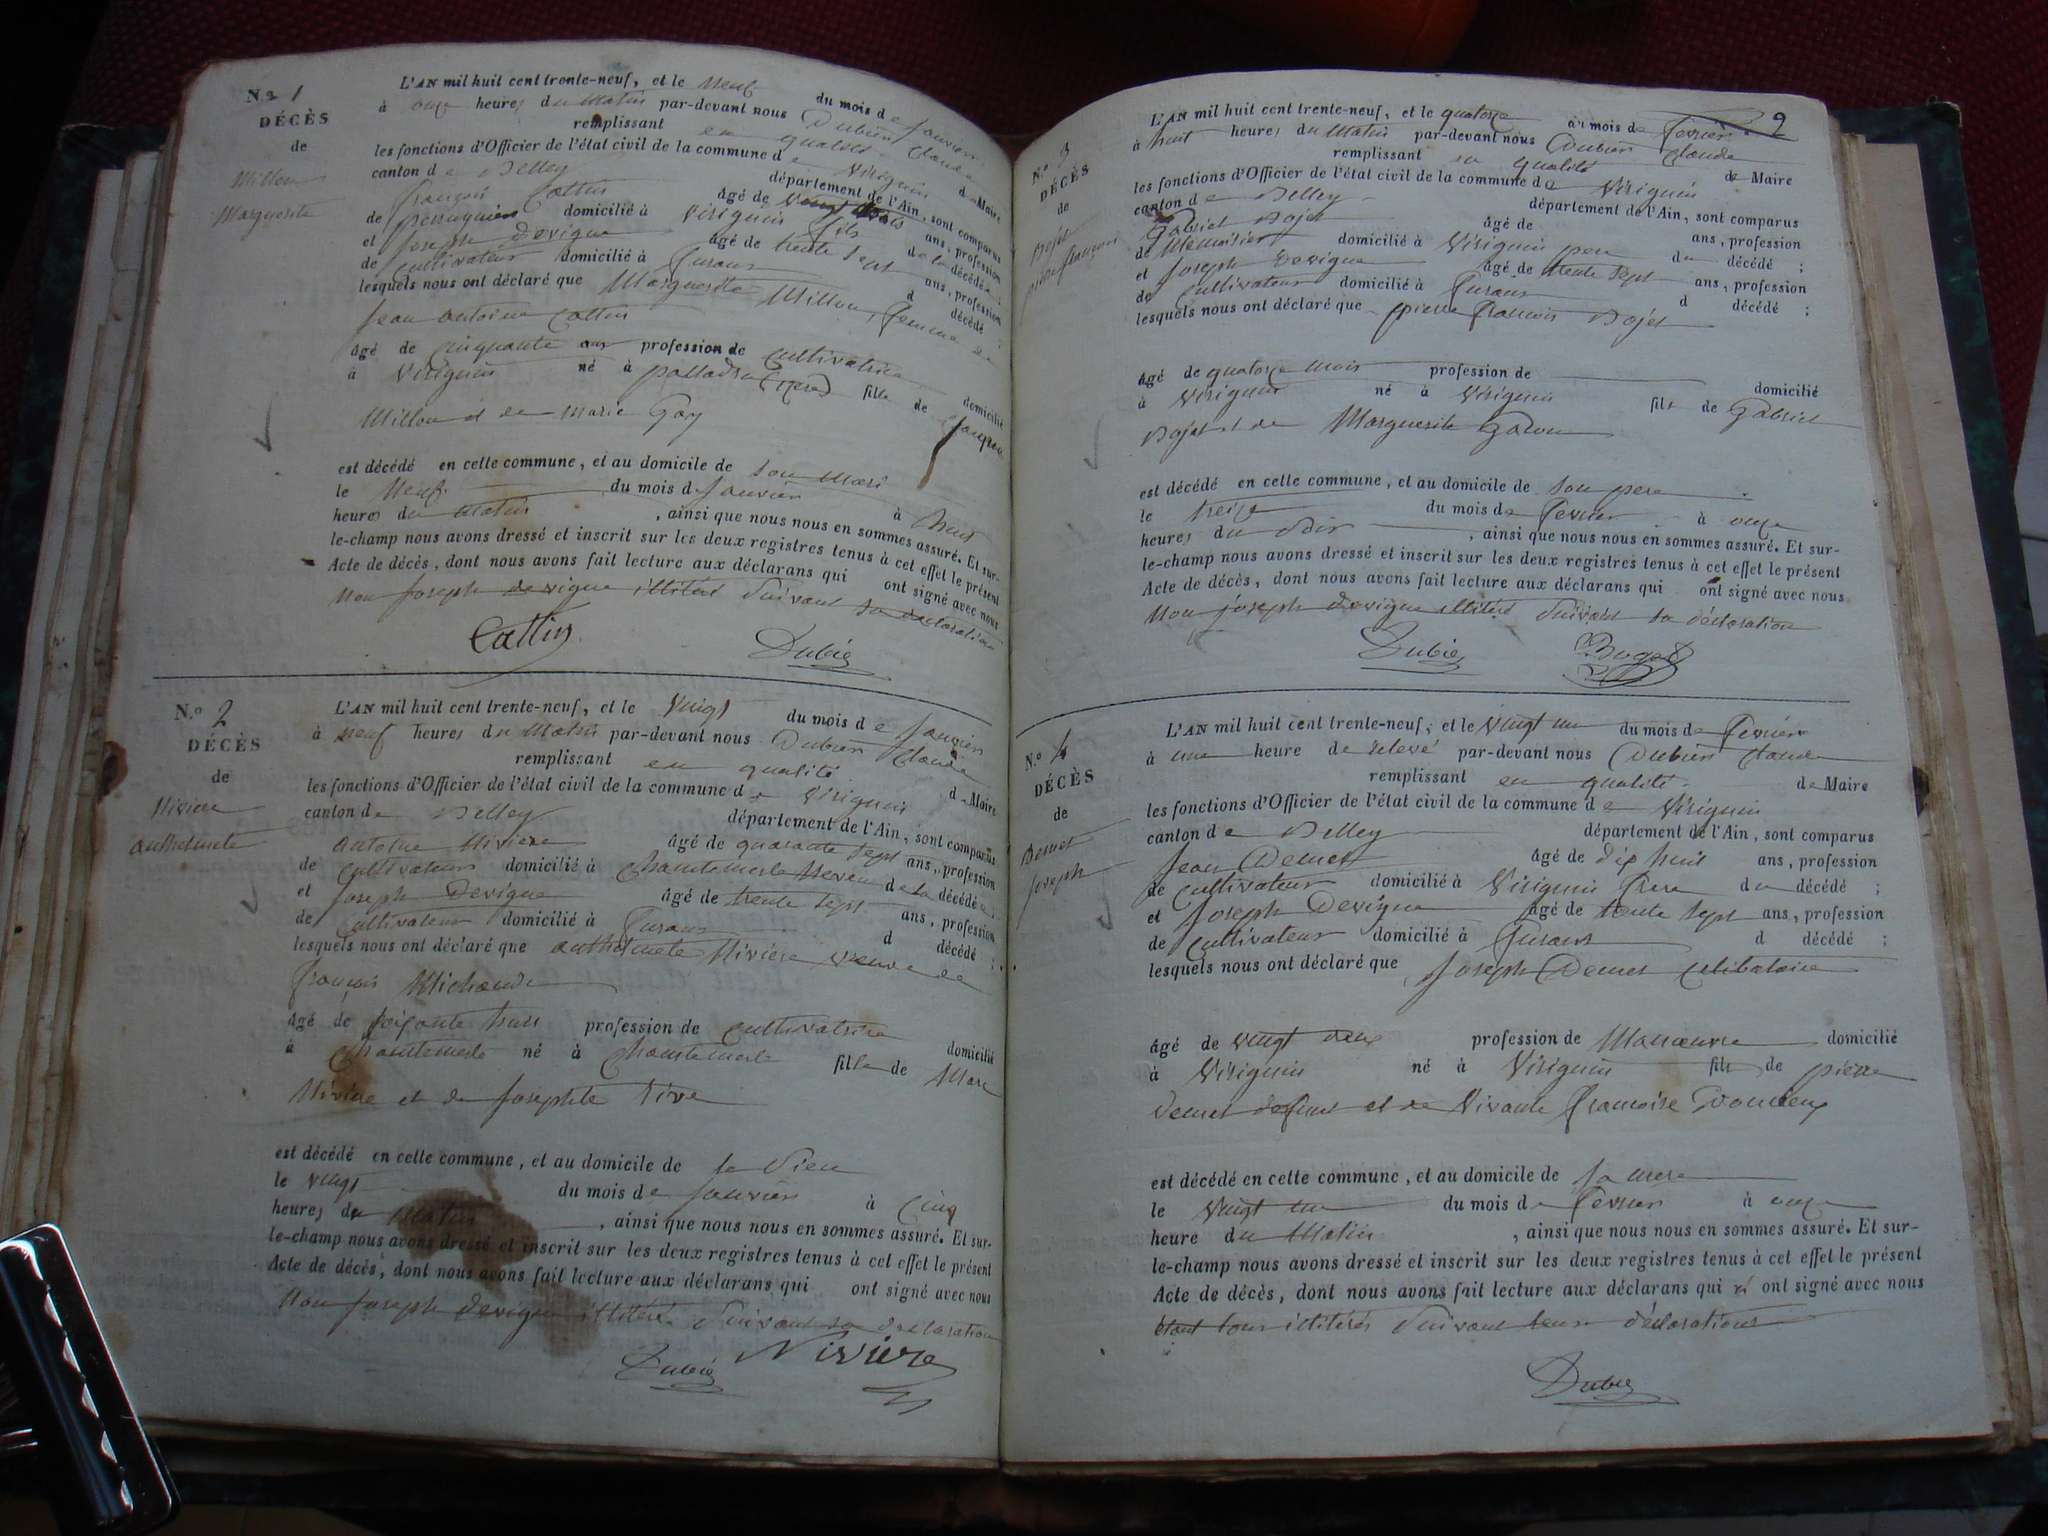 N.o 1
DÉCÈS
de
Millon
Marguerite
L'AN mil huit cent trente-neuf, et le neuf du mois de Janvier
à onze heures du Matin par-devant nous Dubien Claude
remplissant en qualité de Maire
les fonctions d'Officier de l'état civil de la commune de Virignin
canton de Belley département de l'Ain, sont comparus
françois Cattin âgé de vingt trois ans, profession
de perruquier domicilié à Virignin fils de la décédée ;
et Joseph Devigne âgé de trente sept ans, profession
de cultivateur domicilié à d décédé ;
lesquels nous ont déclaré que Marguerite Millon, femme de
Jean Antoine Cattin
âgé de cinquante ans profession de cultivatrice domicilié
à Virignin né à (Isère) fille de Jacques
Millon et de Marie Goy
est décédé en cette commune, et au domicile de son mari
le neuf du mois de Janvier à huit
heures du matin , ainsi que nous nous en sommes assuré. Et sur-
le-champ nous avons dressé et inscrit sur les deux registres tenus à cet effet le présent
Acte de décès, dont nous avons fait lecture aux déclarans qui ont signé avec nous
non Joseph devigne illitéré suivant sa déclaration
Cattin Dubié
N.o 2
DÉCÈS
de
Nivière
anthelmete
L'AN mil huit cent trente-neuf, et le vingt du mois de Janvier
à neuf heures du Matin par-devant nous Dubien Claude
remplissant en qualité de Maire
les fonctions d'Officier de l'état civil de la commune de Virignin
canton de Belley département de l'Ain, sont comparus
antoine Nivière âgé de quarante sept ans, profession
de cultivateur domicilié à Chantemerle neveu de la décédée ;
et Joseph Devigne âgé de trente sept ans, profession
de cultivateur domicilié à d décédé ;
lesquels nous ont déclaré que anthelmete Nivière veuve de
françois Michaud
âgé de soixante profession de cultivatrice domicilié
à Chantemerle né à Chantemerle fille de Marc
Nivière et de Josephte
est décédé en cette commune, et au domicile de
le vingt du mois de Janvier à cinq
heures du Matin , ainsi que nous nous en sommes assuré. Et sur-
le-champ nous avons dressé et inscrit sur les deux registres tenus à cet effet le présent
Acte de décès, dont nous avons fait lecture aux déclarans qui ont signé avec nous
non Joseph devigne illitéré suivant sa déclaration
Dubié Nivière
2
N.o 3
DÉCÈS
de
Bojet
pierre françois
L'AN mil huit cent trente-neuf, et le quatorze du mois de février
à huit heures du Matin par-devant nous Dubien Claude
remplissant en qualité de Maire
les fonctions d'Officier de l'état civil de la commune de Virignin
canton de Belley département de l'Ain, sont comparus
Gabriel Bojet âgé de ans, profession
de Menuisier domicilié à Virignin pere du décédé ;
et Joseph Devigne âgé de trente sept ans, profession
de cultivateur domicilié à d décédé ;
lesquels nous ont déclaré que pierre françois Bojet
âgé de quatorze mois profession de domicilié
à Virignin né à Virignin fils de Gabriel
Bojet et de Marguerite
est décédé en cette commune, et au domicile de son pere
le treize du mois de février à onze
heures du soir , ainsi que nous nous en sommes assuré. Et sur-
le-champ nous avons dressé et inscrit sur les deux registres tenus à cet effet le présent
Acte de décès, dont nous avons fait lecture aux déclarans qui ont signé avec nous
non joseph devigne illitéré suivant sa déclaration
Dubié Boget
N.o 4
DÉCÈS
de
Demet
Joseph
L'AN mil huit cent trente-neuf, et le vingt un du mois de février
à une heure de relevé par-devant nous Dubien Claude
remplissant en qualité de Maire
les fonctions d'Officier de l'état civil de la commune de Virignin
canton de Belley département de l'Ain, sont comparus
Jean Demet âgé de dix huit ans, profession
de cultivateur domicilié à Virignin frere du décédé ;
et Joseph Devigne âgé de trente sept ans, profession
de cultivateur domicilié à d décédé ;
lesquels nous ont déclaré que Joseph Demet celibataire
âgé de vingt deux profession de Manoeuvre domicilié
à Virignin né à Virignin fils de pierre
Demet defunt et de vivante françoise
est décédé en cette commune, et au domicile de sa mere
le vingt un du mois de février à onze
heure du Matin , ainsi que nous nous en sommes assuré. Et sur-
le-champ nous avons dressé et inscrit sur les deux registres tenus à cet effet le présent
Acte de décès, dont nous avons fait lecture aux déclarans qui n' ont signé avec nous
étant tous illitérés suivant leurs déclarations
Dubié